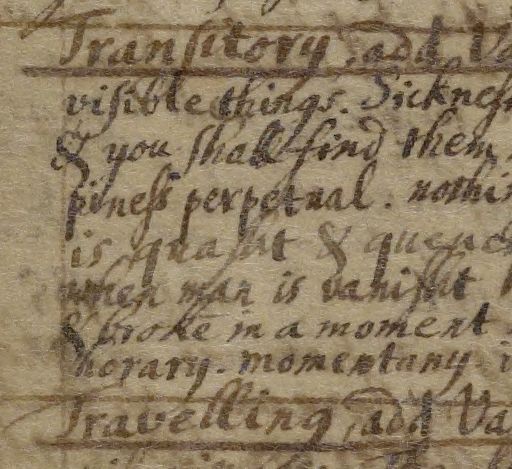 Transitory, add Va
visible things. Sickness
& you shall find them
piness perpetual. nothi
is quasht & quench
when man is vanisht
& broke in a moment
horary. momentany i
Travelling, add Va